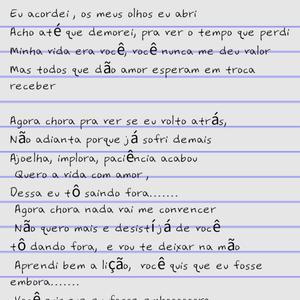 Eu acordei , os meus olhos eu abri
Acho até que demorei, pra ver o tempo que perdi
Minha vida era você, você nunca me deu valor
Mas todos que dão amor esperam em troca
receber
Agora chora pra ver se eu volto atrás,
Não adianta porque já sofri demais
Ajoelha, implora, paciência acabou
Quero a vida com amor ,
Dessa eu tô saindo fora.......
Agora chora nada vai me convencer
Não quero mais e desistí já de você
tô dando fora, e vou te deixar na mão
Aprendi bem a lição, você quis que eu fosse
embora.......